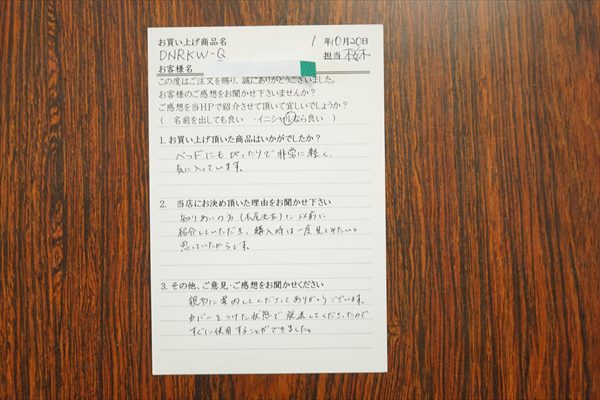 お買い上げ商品名
1 年10月20日
DNRKW-Q
担当 桜木
お客様名
この度はご注文を賜り、誠にありがとうございました。
お客様のご感想をお聞かせ下さいませんか?
ご感想を当HPで紹介させて頂いて宜しいでしょうか?
( 名前を出しても良い ・イニシャルなら良い )
1. お買い上げ頂いた商品はいかがでしたか?
ベッドにもぴったりで非常に軽く、
気に入っています。
2. 当店にお決め頂いた理由をお聞かせ下さい
知りあいの方 に以前に
紹介していただき、購入時は一度見てみたいと
思っていたからです。
3. その他、ご意見・ご感想をお聞かせください
親切に案内してくださってありがとうございます。
カバーをつけた状態で発送してくださったので
すぐに使用することができました。